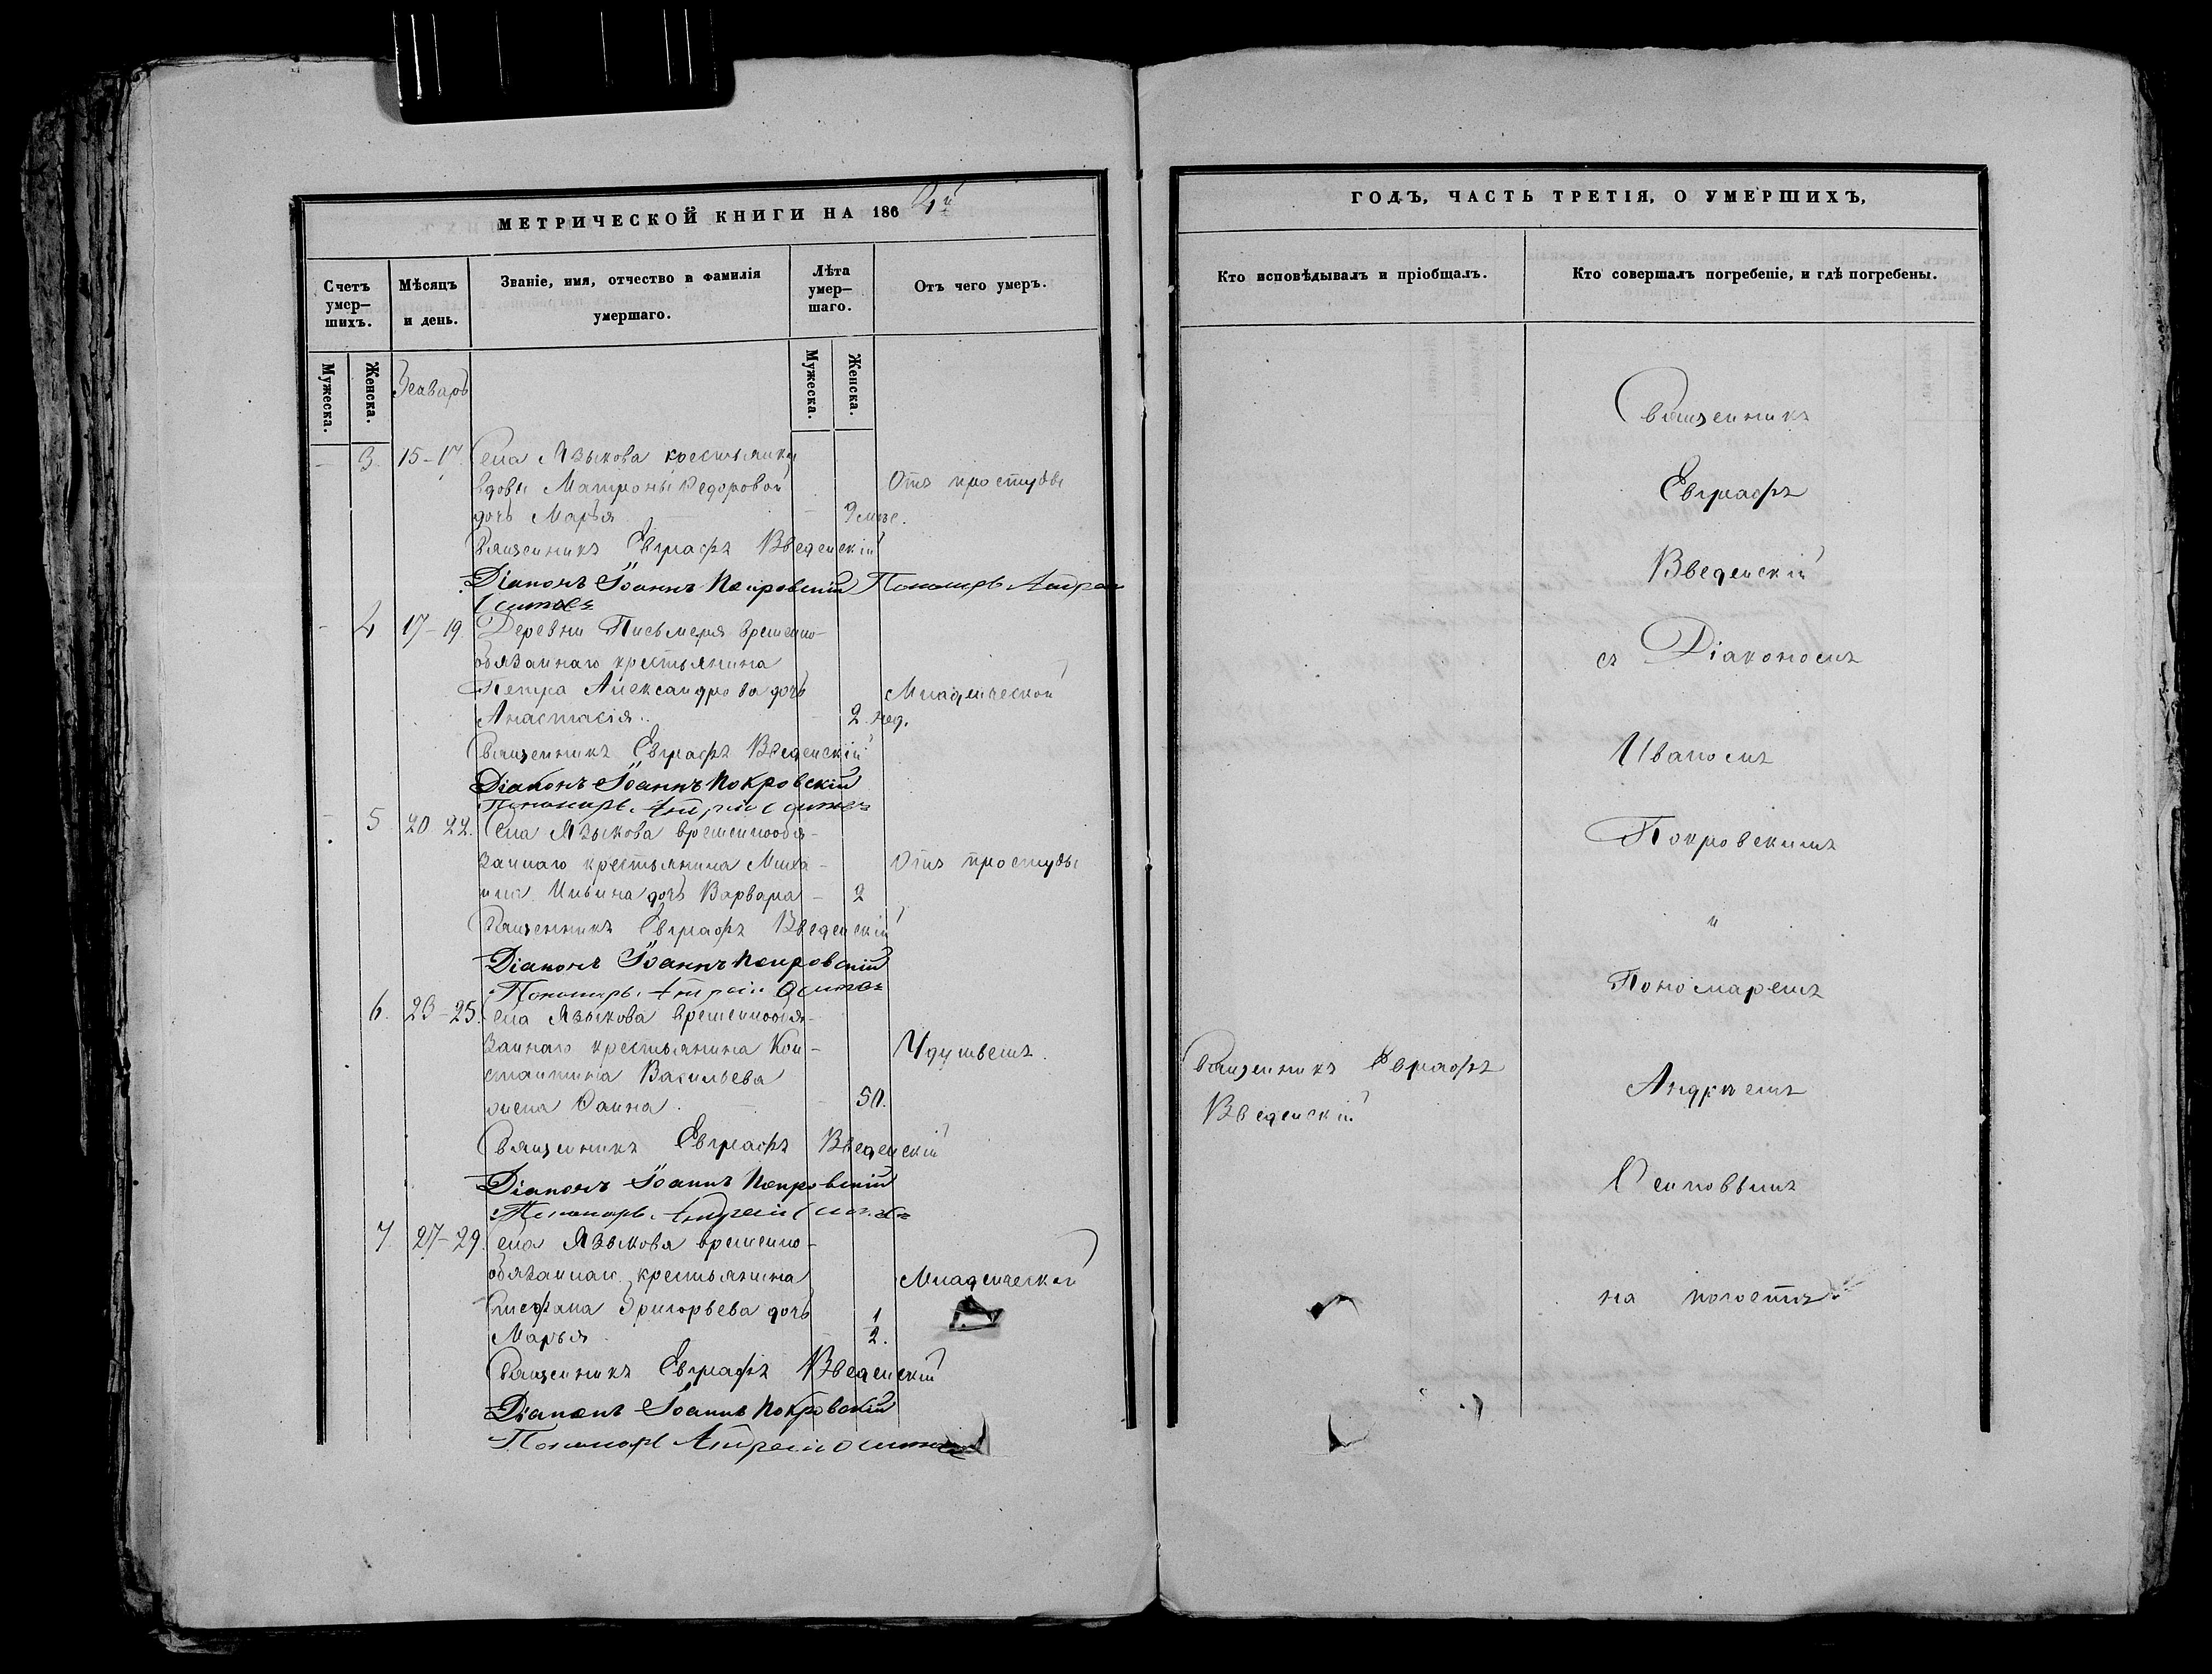 МЕТРИЧЕСКОЙ КНИГИ НА 186 4й
Счетъ умер-шихъ.
Мѣсяцъ и день.
Званіе, имя, отчество и фамилія умершаго.
Лѣта умер-шаго.
Отъ чего умеръ.
Мужеска.
Женска.
Мужеска.
Женска.
Январь
3. 15-17. Села Языкова крестьянки
вдовы Матроны Ѳедоровой Отъ простуды
дочь Марья 9 мѣс.
Священникъ Евграфъ Введенскій
Діаконъ Іоаннъ Покровскій Пономарь Андрей
Осиповъ
4 17-19 Деревни Письмеря временно-
обязаннаго крестьянина
Петра Александрова дочь Младенческой
Анастасія 2 нед.
Священникъ Евграфъ Введенскій
Діаконъ Іоаннъ Покровскій
Пономарь Андрей Осиповъ
5 20-22. Села Языкова временнообя-
заннаго крестьянина Миха- Отъ простуды
ила Ильина дочь Варвара 2
Священникъ Евграфъ Введенскій
Діаконъ Іоаннъ Покровскій
Пономарь Андрей Осиповъ
6. 23-25. Села Языкова временнообя-
заннаго крестьянина Кон- Удушьемъ.
стантина Васильева
жена 50.
Священникъ Евграфъ Введенскій
Діаконъ Іоаннъ Покровскій
Пономарь Андрей Осиповъ
7. 27-29. Села Языкова временно-
обязаннаго крестьянина Младенческой
Стефана Григорьева дочь
Марья 1/2.
Священникъ Евграфъ Введенскій
Діаконъ Іоаннъ Покровскій
Пономарь Андрей Осиповъ
ГОДЪ, ЧАСТЬ ТРЕТІЯ, О УМЕРШИХЪ,
Кто исповѣдывалъ и пріобщалъ.
Кто совершалъ погребеніе, и гдѣ погребены.
Священникъ Евграфъ
Введенскій
Священникъ
Евграфъ
Введенскій
съ Діакономъ
Иваномъ
Покровскимъ
и
Пономаремъ
Андреемъ
Осиповымъ
на погостѣ.